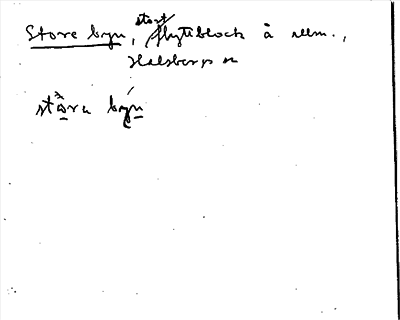 Store byn, stort flyttblock å utm.,
Halsbergs sn
ståra byn